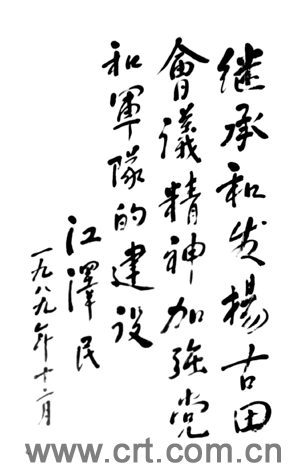 继承和发揚古田
會議精神加强党
和軍隊的建设
江澤民
一九八九年十二月
www.crt.com.cn